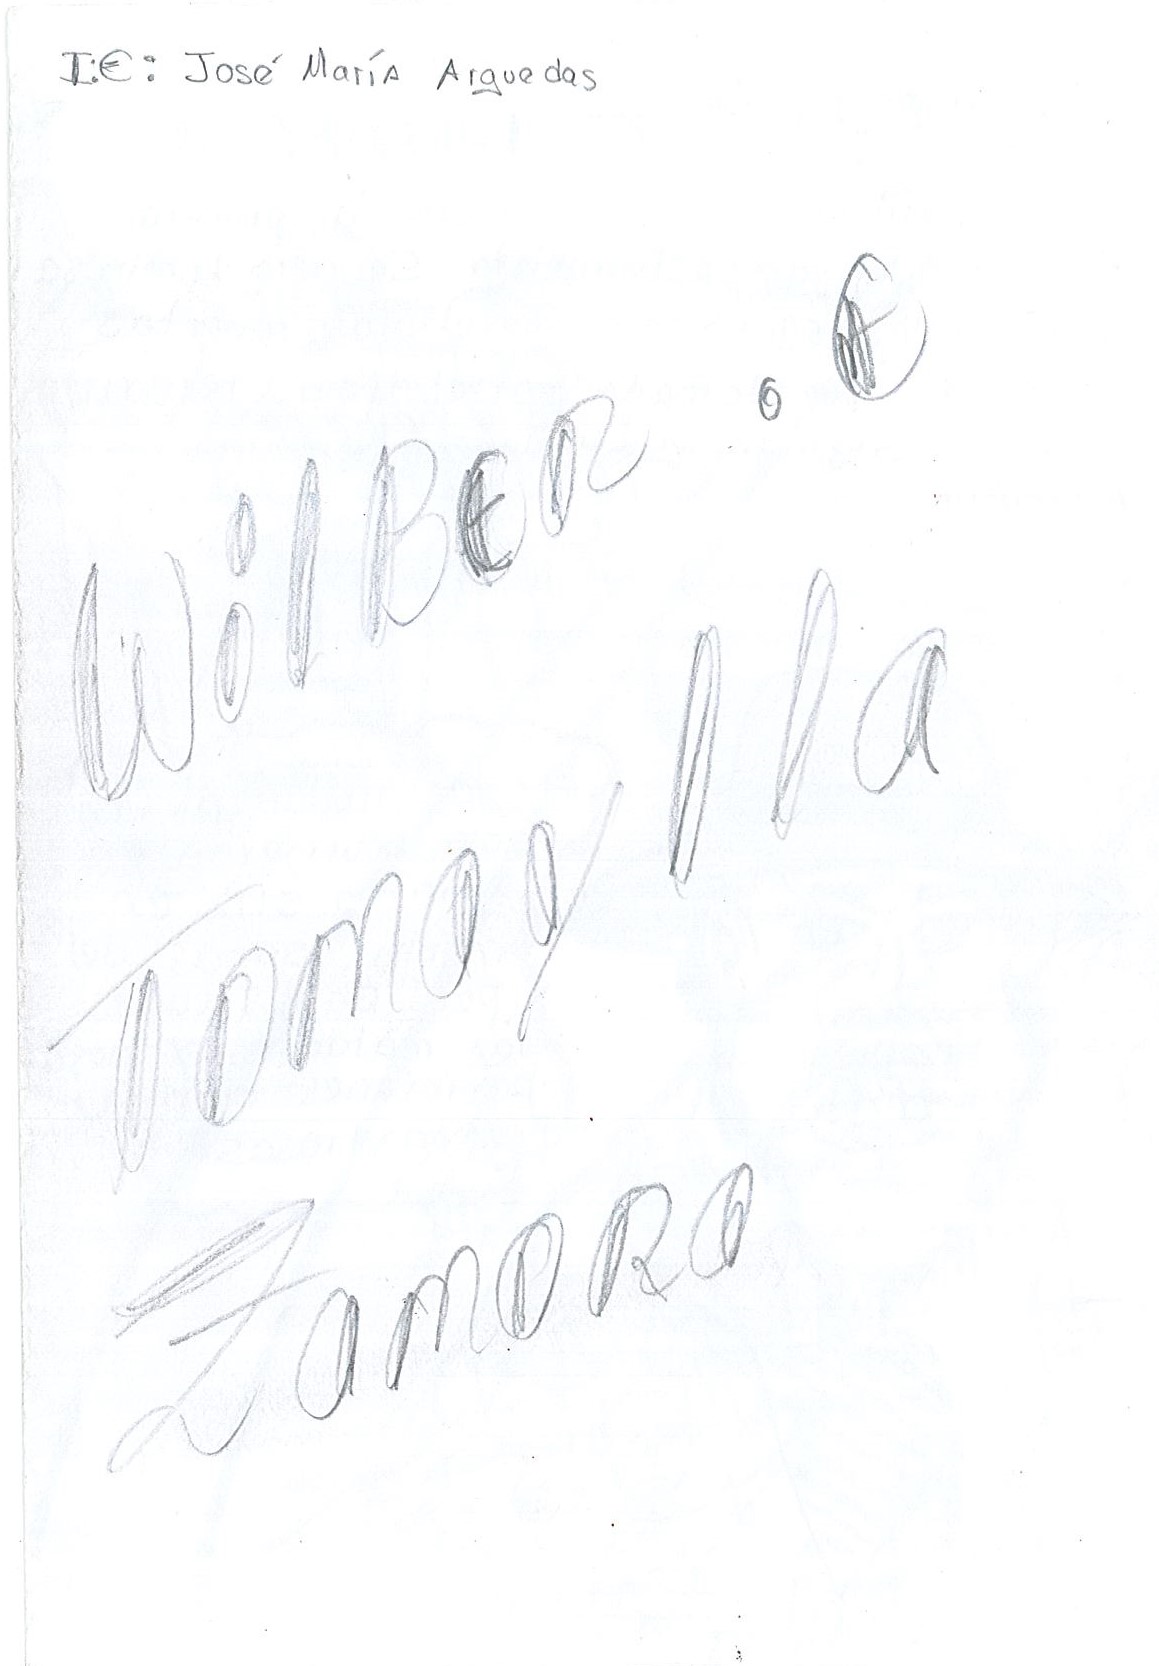 I.E: José María Arguedas
WilBER . E
Tomaylla
Zamora